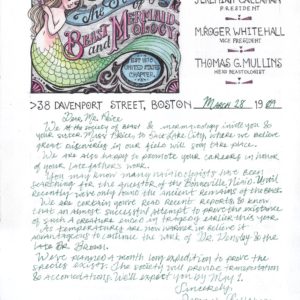 The Society
of
BEAST MERMAID-
and OLOGY
EST. 1810
UNITED STATES
CHAPTER
JEREMIAH CALLAHAN
PRESIDENT
M. ROGER WHITEHALL
VICE PRESIDENT
THOMAS G. MULLINS
HEAD BEASTOLOGIST
>38 DAVENPORT STREET, BOSTON March 28 1909
Dear Mr. Price
We at the society of beast & mermaid-ology invite you &
your sister Miss Price to Salt Lake City, where we believe
great discoveries in our field will soon take place.
We are also happy to promote your careers in honor
of your late father's work.
You may know many
searching for the of the Bonneville . Until
recently we've only found the ancient remains of the Beast.
We are certain you've read recent reports & know
that an almost successful attempt to prove the existence
of such a creature ended in tragedy earlier this year.
As temperatures are now warmer we believe it
advantageous to continue the work of Dr. & the
late Dr.
We've planned a month long expedition to prove the
species exists. The society will provide transportation
& accomodations. We'll expect you by May 1.
Sincerely,